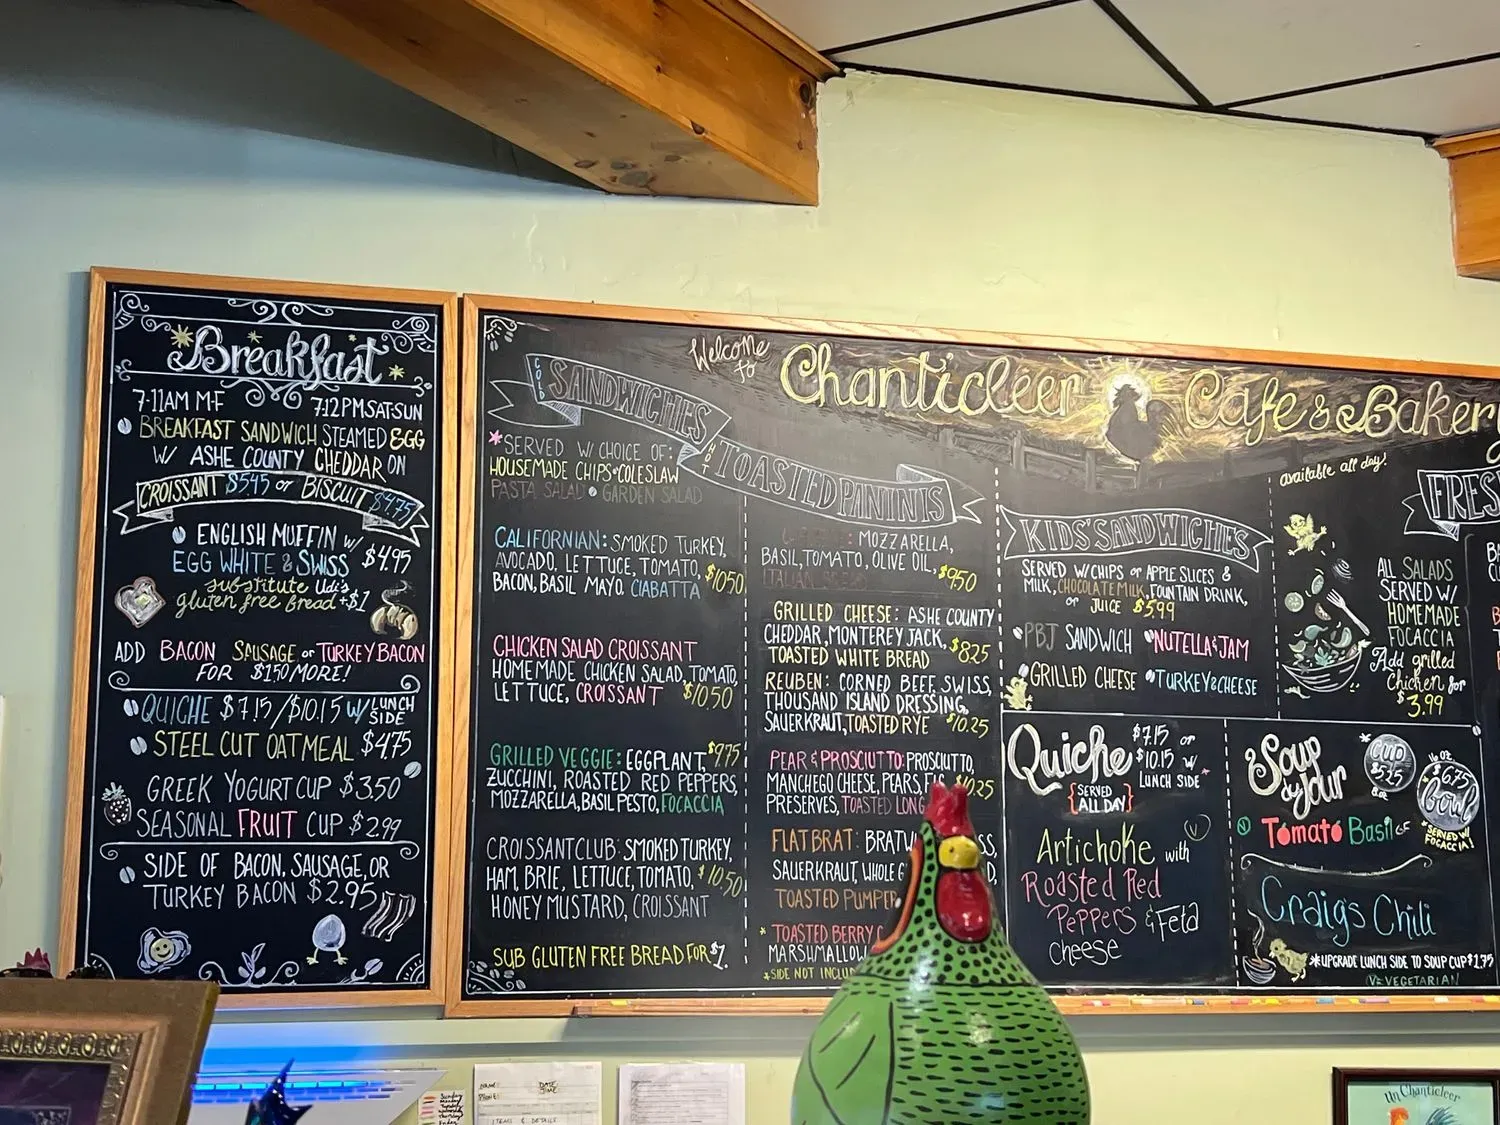 Breakfast
7-11AM M-F 7-12PM SAT-SUN
BREAKFAST SANDWICH STEAMED EGG
W/ ASHE COUNTY CHEDDAR ON
CROISSANT $5.45 or BISCUIT $4.75
ENGLISH MUFFIN W/
EGG WHITE & SWISS $4.95
substitute Udi's
gluten free bread +$1
ADD BACON SAUSAGE or TURKEY BACON
FOR $1.50 MORE!
QUICHE $7.15/$10.15 W/ LUNCH SIDE
STEEL CUT OATMEAL $4.75
GREEK YOGURT CUP $3.50
SEASONAL FRUIT CUP $2.99
SIDE OF BACON, SAUSAGE, OR
TURKEY BACON $2.95
Welcome to Chanticleer Cafe & Baker
COLD SANDWICHES
*SERVED W/ CHOICE OF:
HOUSEMADE CHIPS • COLESLAW
PASTA SALAD • GARDEN SALAD
CALIFORNIAN: SMOKED TURKEY,
AVOCADO, LETTUCE, TOMATO,
BACON, BASIL MAYO. CIABATTA $10.50
CHICKEN SALAD CROISSANT
HOMEMADE CHICKEN SALAD, TOMATO,
LETTUCE, CROISSANT $10.50
GRILLED VEGGIE: EGGPLANT, $9.75
ZUCCHINI, ROASTED RED PEPPERS,
MOZZARELLA, BASIL PESTO, FOCACCIA
CROISSANT CLUB: SMOKED TURKEY,
HAM, BRIE, LETTUCE, TOMATO, $10.50
HONEY MUSTARD, CROISSANT
SUB GLUTEN FREE BREAD FOR $1.
HOT TOASTED PANINIS
: MOZZARELLA,
BASIL, TOMATO, OLIVE OIL,
ITALIAN $9.50
GRILLED CHEESE: ASHE COUNTY
CHEDDAR, MONTEREY JACK,
TOASTED WHITE BREAD $8.25
REUBEN: CORNED BEEF, SWISS,
THOUSAND ISLAND DRESSING,
SAUERKRAUT, TOASTED RYE $10.25
PEAR & PROSCIUTTO: PROSCIUTTO,
MANCHEGO CHEESE, PEARS, FIG $10.25
PRESERVES, TOASTED LONG
FLAT BRAT: BRATW SS,
SAUERKRAUT, WHOLE G
TOASTED PUMPER
* TOASTED BERRY
MARSHMALLOW
*SIDE NOT INCLU
KIDS SANDWICHES
SERVED W/ CHIPS or APPLE SLICES &
MILK, CHOCOLATE MILK, FOUNTAIN DRINK,
or JUICE $5.99
PBJ SANDWICH *NUTELLA & JAM
GRILLED CHEESE *TURKEY & CHEESE
Quiche $7.15 or
$10.15 W/
LUNCH SIDE
{SERVED ALL DAY}
Artichoke with
Roasted Red
Peppers & Feta
cheese
available all day!
FRES
ALL SALADS
SERVED W/
HOMEMADE
FOCACCIA
Add grilled
Chicken for
$3.99
Soup du Jour
CUP $5.25 8 oz
16 oz $6.75 Bowl
*SERVED W/ FOCACCIA!
V Tomato Basil GF
Craig's Chili
*UPGRADE LUNCH SIDE TO SOUP CUP $1.75
V=VEGETARIAN
NAME: DATE
PHONE: TIME
ITEMS & DETAILS
Un Chanticleer